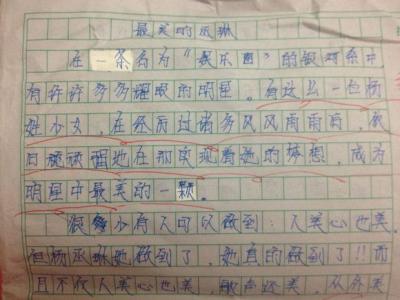 最美的丞琳
在一条名为“娱乐圈”的银河系中
有许许多多耀眼的明星。有这么一位杨
姓少女,在经历过诸多风风雨雨后,依
旧顽强地在不断实现着她的梦想,成为
明星中最美的一颗。
很少有人可以做到:人美心也美。
但杨丞琳她做到了,她真的做到了!!而
且不仅人美心也美,歌声还美,从外美